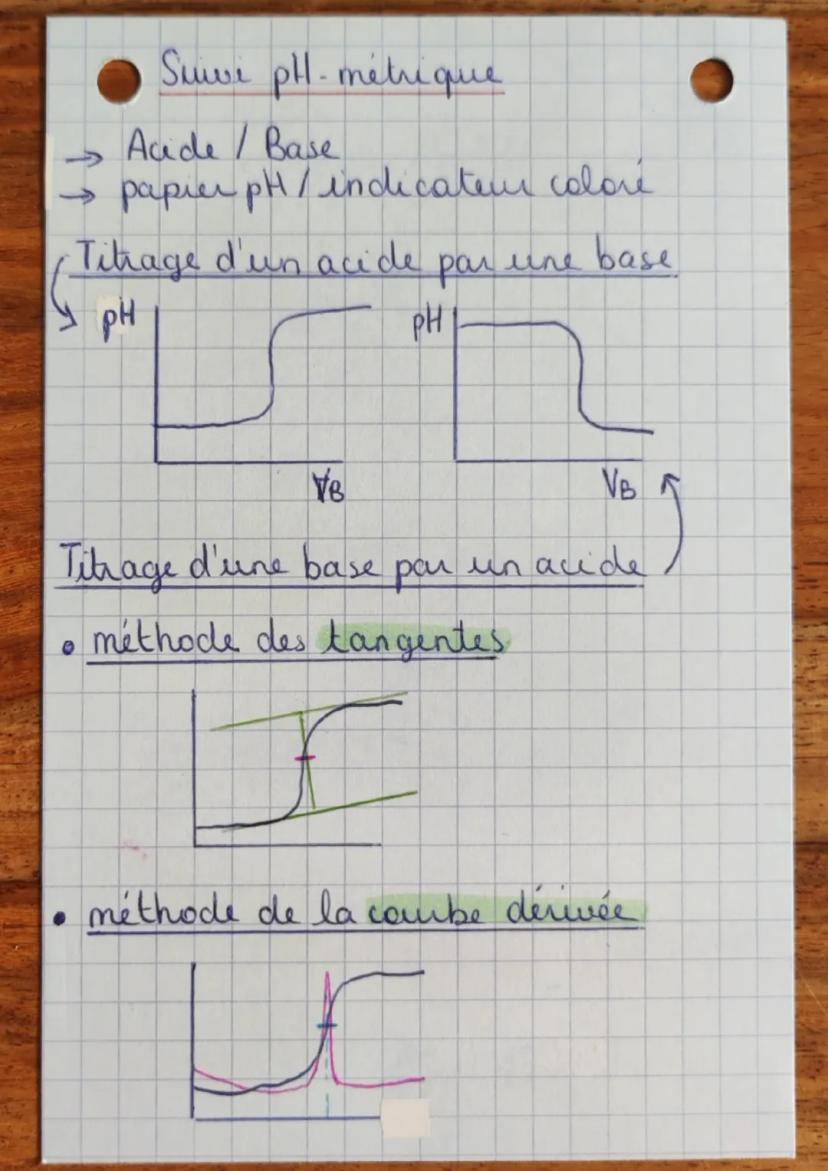 Suivi pH-métrique
→ Acide / Base
→ papier pH / indicateur coloré
Titrage d'un acide par une base
pH
pH
VB
VB
Titrage d'une base par un acide
• méthode des tangentes
• méthode de la courbe dérivée